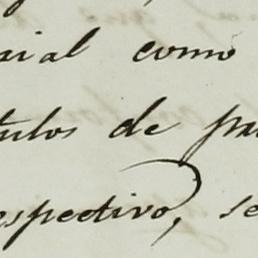 rial como
tulos de pa
espectivo, se